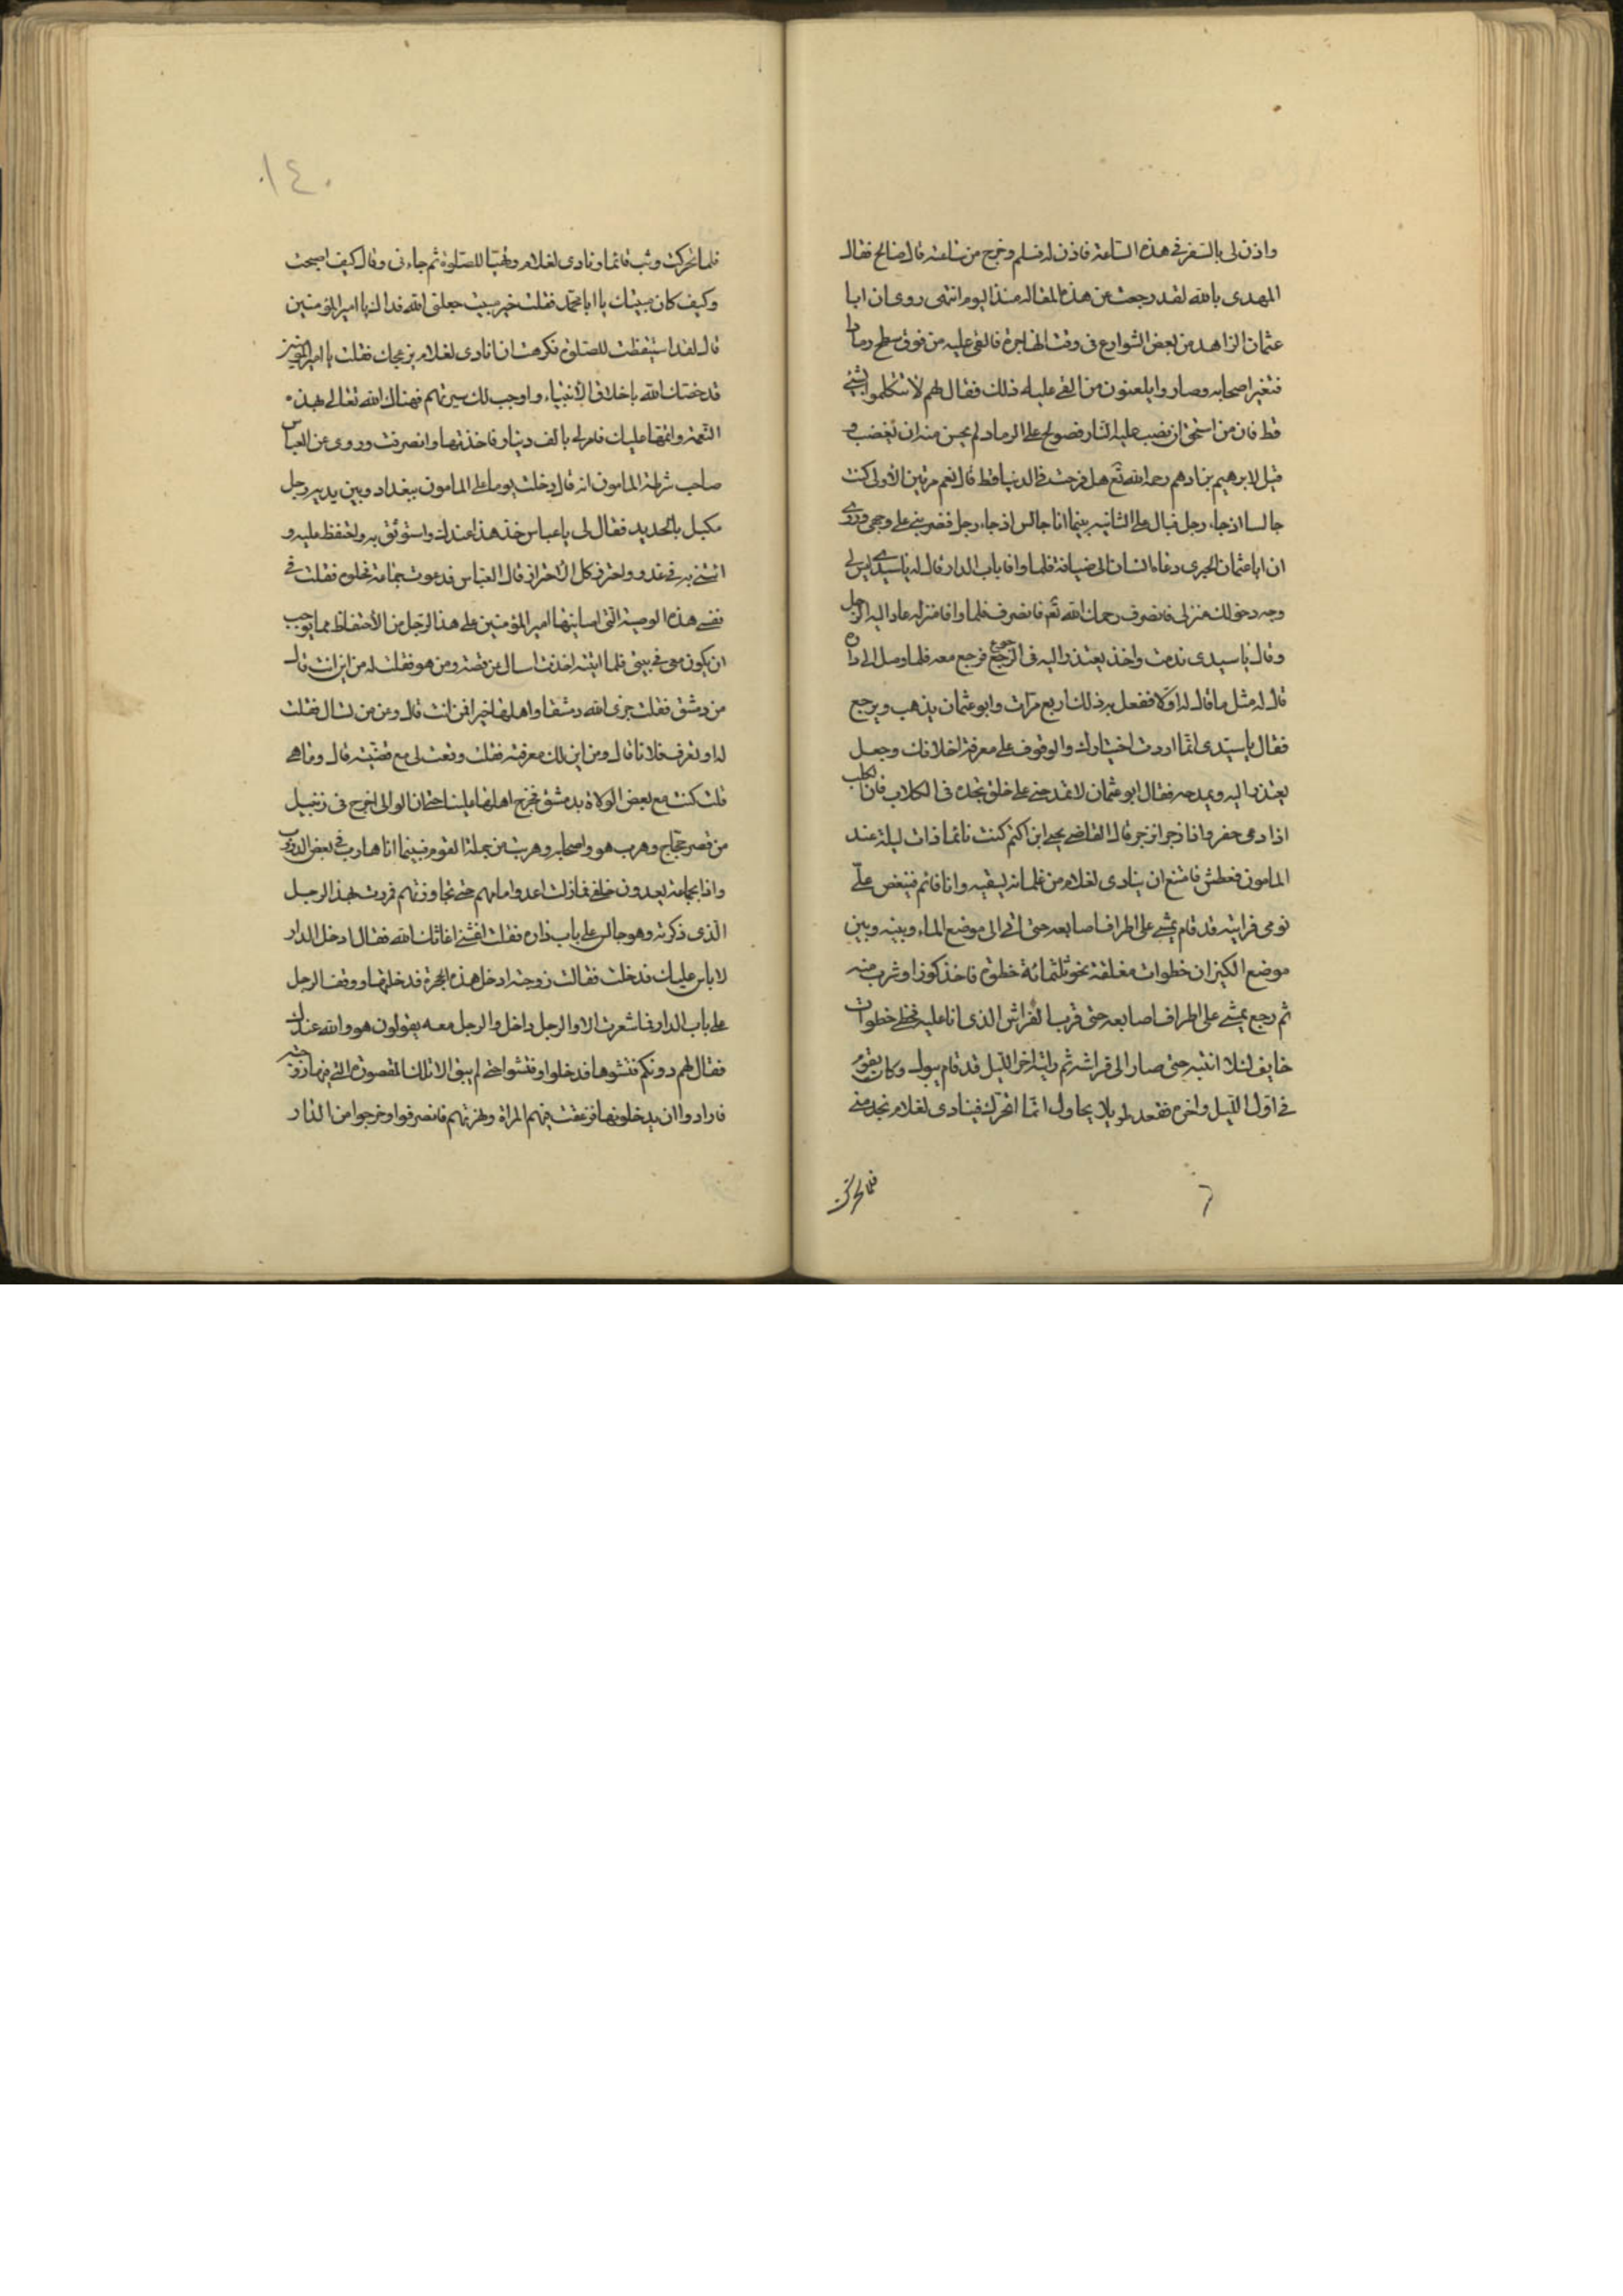 واذن لى بالسفر فى هذه الساعة فاذن له فسلم وخرج من ساعته قال صالح فقال
المهدى بالله لقد رجعت عن هذه المقاله منذ اليوم انتهى روى ان ابا
عثمان الزاهد من ببعض الشوارع فى وقت الهاجرة فالقى عليه من فوق سطح رماد
فتغير اصحابه وصاروا يلعنون من القى عليه ذلك فقال لهم لا تتكلموا بشئ
قط فان من استحق ان يصب عليه النار فصولح على الرماد لم يحسن منه ان يغضب و
قيل لابرهيم بن ادهم رحمه الله تع هل فرحت فى الدنيا قط قال نعم مرتين الاولى كنت
جالسا اذ جاء رجل فبال على الثانيه بينما انا جالس اذ جاء رجل فضربنى على وجهى وروى
ان ابا عثمان الحيرى دعاه انسان الى ضيافة فلما وافا باب الدار قال له يا سيدى ليس لى
وجه دخولك منزلى فانصرف رحمك الله تع فانصرف فلما وافا منزله عاد اليه الرجل
وقال يا سيدى ندمت واخذ يعتذر اليه فى الرجوع فرجع معه فلما وصل الى داره
قال له مثل ما قال له اولا ففعل به ذلك اربع مرات وابو عثمان يذهب ويرجع
فقال يا سيدى انما اردت اختبارك والوقوف على معرفة اخلاقك وجعل
يعتذر اليه ويمدحه فقال ابو عثمان لا تمدحنى على خلق تجده فى الكلاب فان الكلب
اذا دعى حضر واذا زجر انزجر قال القاضى يحيى ابن اكثم كنت نائما ذات ليلة عند
المامون فعطش فامتنع ان ينادى لغلام من غلمانه يسقيه وانا نائم فينغص على
نومى فرايته قد قام يمشى على اطراف اصابعه حتى اتى الى موضع الماء وبينه وبين
موضع الكيزان خطوات مغلقة نحو ثلثمائة خطوة فاخذ كوزا وشرب منه
ثم رجع يمشى على اطراف اصابعه حتى قرب الفراش الذى انا عليه فخطى خطوات
خايف لئلا انتبه حتى صار الى فراشه ثم رايته اخر الليل قد قام يبول وكان يقوم
فى اول الليل واخره فقعد طويلا يحاول انما اتحرك فينادى لغلام نجد منى
فلما تحركت
فلما تحركت وثب قائما ونادى لغلام وتهيا للصلوة ثم جاءنى وقال كيف اصبحت
وكيف كان مبيتك يا ابا محمد فقلت خير مبيت جعلنى الله فداك يا امير المؤمنين
قال لقد استيقظت للصلوة فكرهت ان انادى لغلام يزعجك فقلت يا امير المؤمنين
قد خصك الله باخلاق الانبياء واوجب لك سيرتهم فهناك الله تعالى بهذه
النعمة واتمها عليك فامر لى بالف دينار فاخذتها وانصرفت وروى عن العباس
صاحب شرطة المامون انه قال دخلت يوما على المامون ببغداد وبين يديه رجل
مكبل بالحديد فقال لى يا عباس خذ هذا عندك واستوثق به واحتفظ عليه و
ائتنى به فى غد واحترز كل الاحتراز قال العباس فدعوت جماعة نحلوه فقلت فى
نفسى هذه الوصية التى اوصانيها امير المؤمنين على هذا الرجل من الاحتفاظ مما يوجب
ان يكون معى فى بيتى فلما اتيته اخذت اسال عن قصته ومن هو فقلت له من اين انت قال
من دمشق فقلت جزى الله دمشقا واهلها خيرا فمن انت قال وعن من تسال فقلت
له او تعرف فلانا قال ومن اين لك معرفته فقلت وقعت لى مع قضيته قال وما هى
قلت كنت مع بعض الولاة بدمشق فخرج اهلها علينا حتى ان الوالى اخرج فى زنبيل
من قصر حجاج وهرب هو واصحابه وهربت من جملة القوم فبينما انا هارب فى بعض الدروب
واذا بجماعة يعدون خلفى فما زلت اعدو امامهم حتى تجاوزتهم فمررت بهذا الرجل
الذى ذكرته وهو جالس على باب داره فقلت اغثنى اغاثك الله فقال ادخل الدار
لا باس عليك فدخلت فقالت زوجته ادخل هذه الحجرة فدخلتها ووقف الرجل
على باب الدار فما شعرت الا والرجل داخل والرجل معه يقولون هو والله عندك
فقال لهم دونكم فتشوها فدخلوا وفتشوا حتى لم يبق الا تلك المقصورة التى فيها زوجته
فارادوا ان يدخلونها فزعقت فيهم المراة ونهرتهم فانصرفوا وخرجوا من الدار
١٤٠